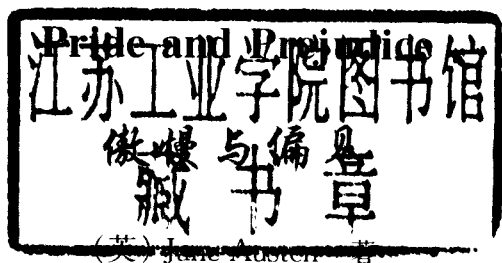 Pride and Prejudice
江苏工业学院图书馆
傲慢与偏见
藏书章
(英) Jane Austen 著